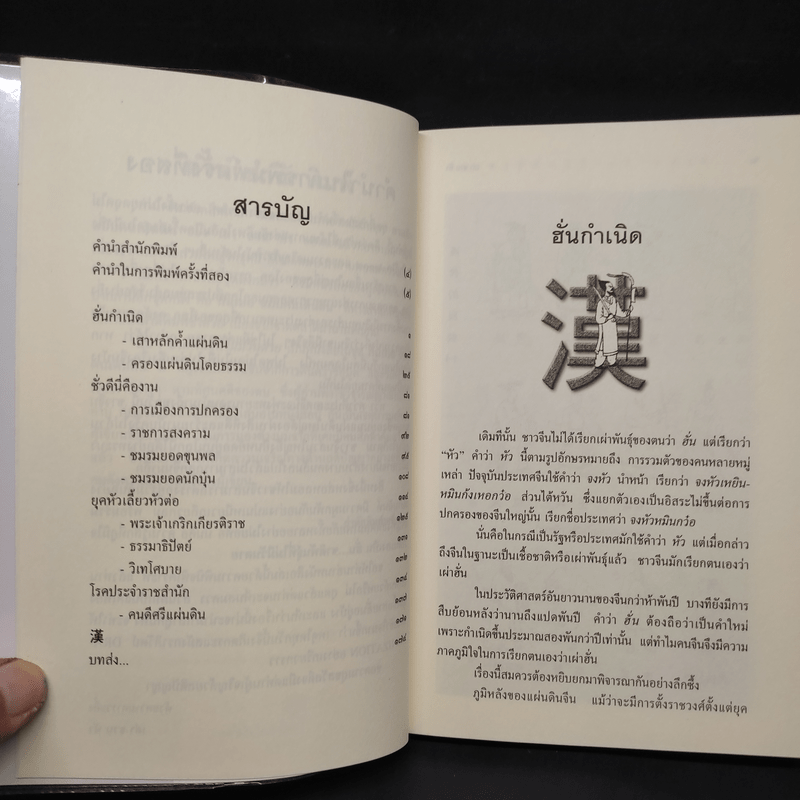 สารบัญ
คำนำสำนักพิมพ์ (๔)
คำนำในการพิมพ์ครั้งที่สอง (๕)
ฮั่นกำเนิด ๑
- เสาหลักค้ำแผ่นดิน ๑๘
- ครองแผ่นดินโดยธรรม ๒๕
ชั่วดีนี่คืองาน ๘๑
- การเมืองการปกครอง ๘๑
- ราชการสงคราม ๙๒
- ชมรมยอดขุนพล ๙๕
- ชมรมยอดนักบุ๋น ๑๐๘
ยุคหัวเลี้ยวหัวต่อ ๑๑๘
- พระเจ้าเกริกเกียรติราช ๑๒๕
- ธรรมาธิปัตย์ ๑๓๑
- วิเทโศบาย ๑๓๒
โรคประจำราชสำนัก ๑๓๔
- คนดีศรีแผ่นดิน ๑๓๗
漢 ๑๗๑
บทส่ง... ๑๗๘
ฮั่นกำเนิด
漢
เดิมทีนั้น ชาวจีนไม่ได้เรียกเผ่าพันธุ์ของตนว่า ฮั่น แต่เรียกว่า
“หัว” คำว่า หัว นี้ตามรูปอักษรหมายถึง การรวมตัวของคนหลายหมู่
เหล่า ปัจจุบันประเทศจีนใช้คำว่า จงหัว นำหน้า เรียกว่า จงหัวเหยิน-
หมินก้งเหอกว๋อ ส่วนไต้หวัน ซึ่งแยกตัวเองเป็นอิสระไม่ขึ้นต่อการ
ปกครองของจีนใหญ่นั้น เรียกชื่อประเทศว่า จงหัวหมินกว๋อ
นั่นคือในกรณีเป็นรัฐหรือประเทศมักใช้คำว่า หัว แต่เมื่อกล่าว
ถึงจีนในฐานะเป็นเชื้อชาติหรือเผ่าพันธุ์แล้ว ชาวจีนมักเรียกตนเองว่า
เผ่าฮั่น
ในประวัติศาสตร์อันยาวนานของจีนกว่าห้าพันปี บางทียังมีการ
สืบย้อนหลังว่านานถึงแปดพันปี คำว่า ฮั่น ต้องถือว่าเป็นคำใหม่
เพราะกำเนิดขึ้นประมาณสองพันกว่าปีเท่านั้น แต่ทำไมคนจีนจึงมีความ
ภาคภูมิใจในการเรียกตนเองว่าเผ่าฮั่น
เรื่องนี้สมควรต้องหยิบยกมาพิจารณากันอย่างลึกซึ้ง
ภูมิหลังของแผ่นดินจีน แม้ว่าจะมีการตั้งราชวงศ์ตั้งแต่ยุค